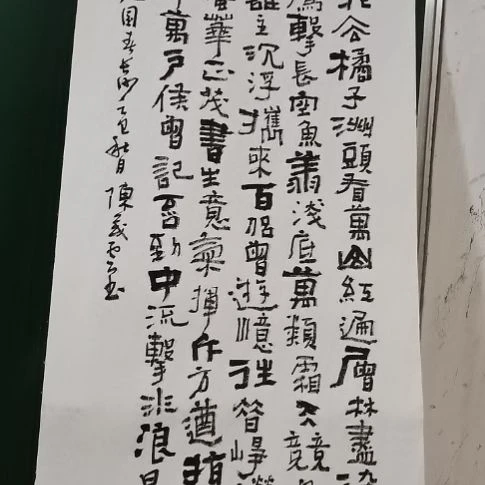 去橘子洲頭看萬山紅遍層林盡染
鷹擊長空魚翔淺底萬類霜天競
誰主沉浮攜來百侶曾遊憶往昔崢嶸
華正茂書生意氣揮斥方遒指
萬戶侯曾記否到中流擊水浪
園春長沙乙巳秋月陳義